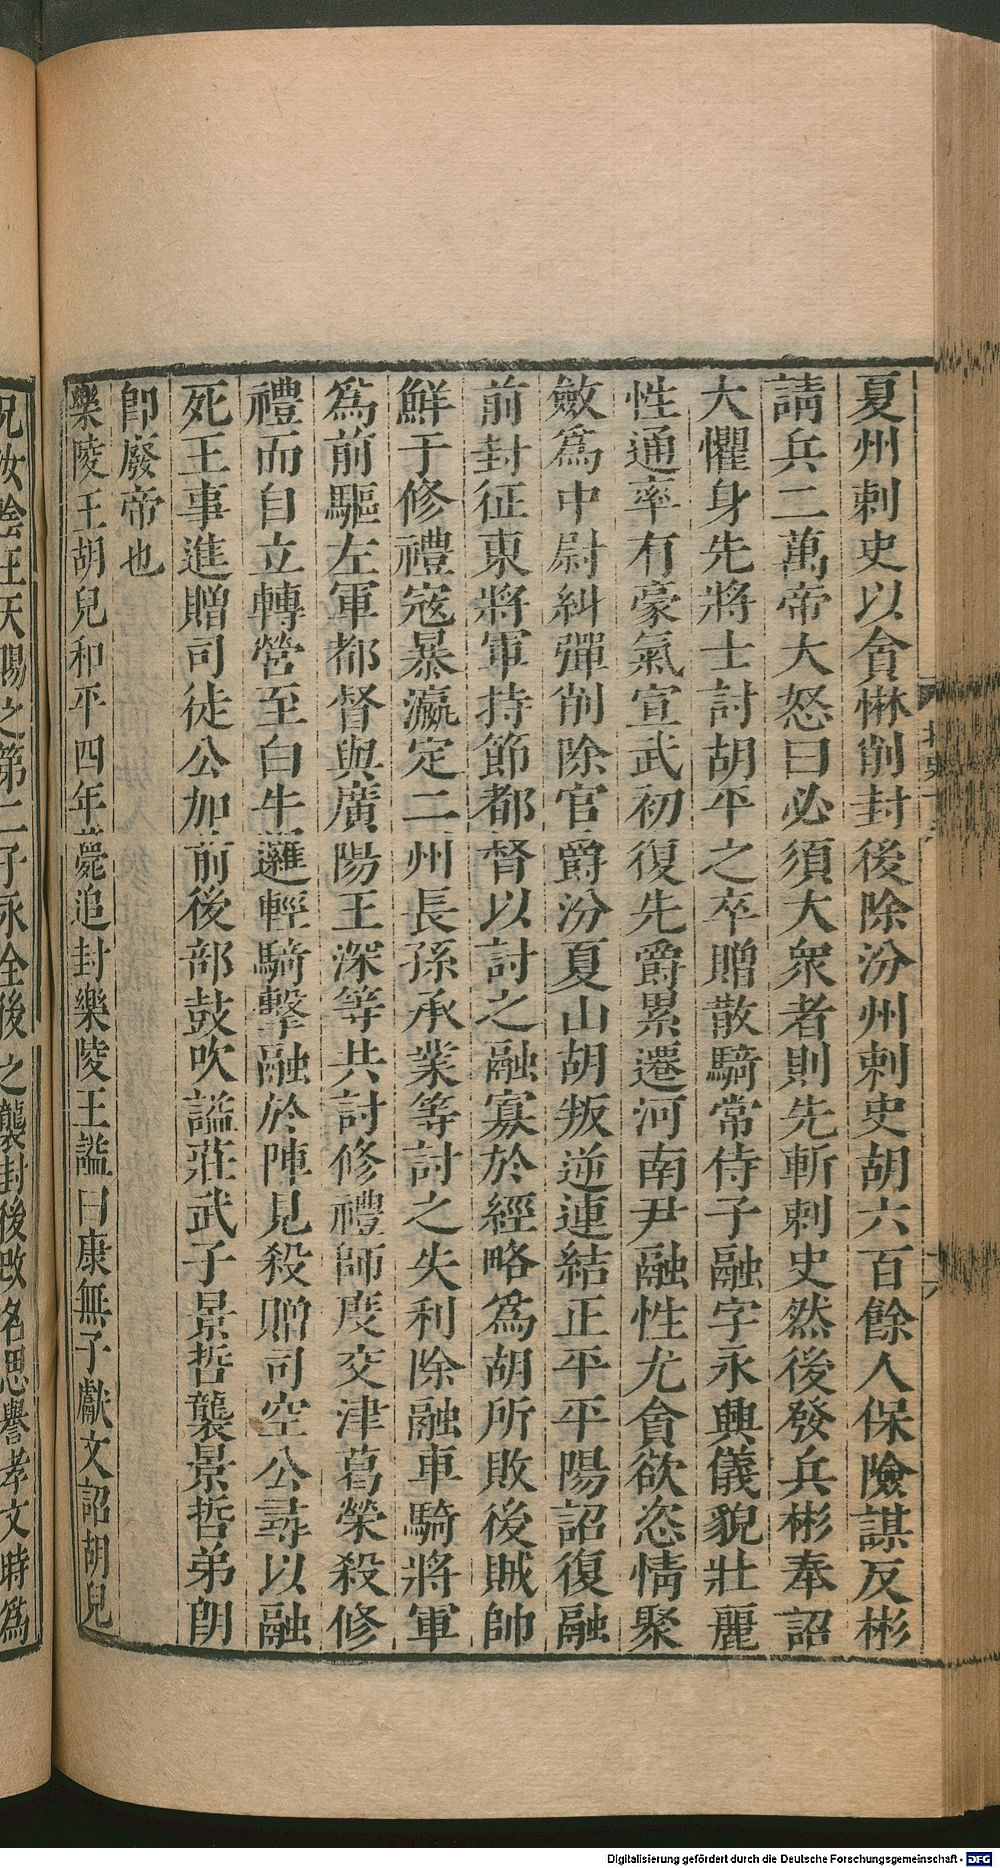 夏州刺史以貪惏削封後除汾州刺史胡六百餘人保險謀反彬
請兵二萬帝大怒曰必須大衆者則先斬刺史然後發兵彬奉詔
大懼身先將士討胡平之卒贈散騎常侍子融字永興儀貌壯麗
性通率有豪氣宣武初復先爵累遷河南尹融性尤貪欲恣情聚
斂爲中尉糾彈削除官爵汾夏山胡叛逆連結正平平陽詔復融
前封征東將軍持節都督以討之融寡於經略爲胡所敗後賊帥
鮮于修禮寇暴瀛定二州長孫承業等討之失利除融車騎將軍
爲前驅左軍都督與廣陽王深等共討修禮師度交津葛榮殺修
禮而自立轉營至白牛邏輕騎擊融於陣見殺贈司空公尋以融
死王事進贈司徒公加前後部鼓吹謚莊武子景哲襲景哲弟朗
卽廢帝也
樂陵王胡兒和平四年薨追封樂陵王謚曰康無子獻文詔胡兒
兄汝陰王天賜之第二子永全後之襲封後改名思譽孝文時爲
Digitalisierung gefördert durch die Deutsche Forschungsgemeinschaft - DFG